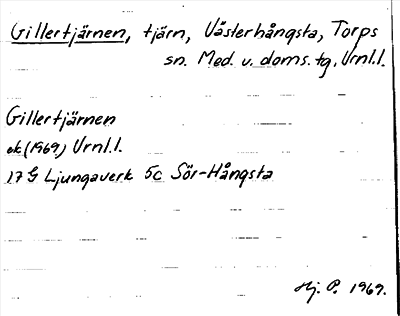 Gillertjärnen, tjärn, Västerhångsta, Torps
sn. Med. v. doms. tg, Vrnl.l.
Gillertjärnen
ek (1969) Vrnl.l.
17 G Ljungaverk 5c Sör-Hångsta
Hj. P. 1969.